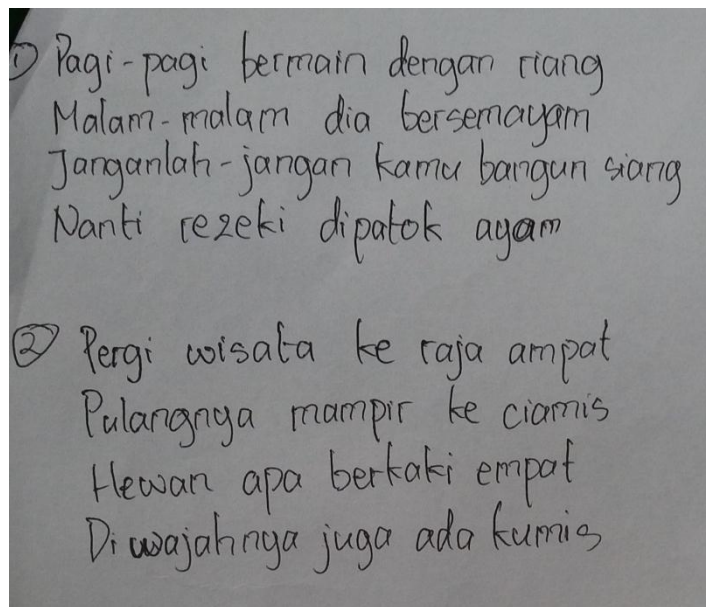 ① Pagi-pagi bermain dengan riang
Malam-malam dia bersemayam
Janganlah-jangan kamu bangun siang
Nanti rezeki dipatok ayam
② Pergi wisata ke raja ampat
Pulangnya mampir ke ciamis
Hewan apa berkaki empat
Di wajahnya juga ada kumis